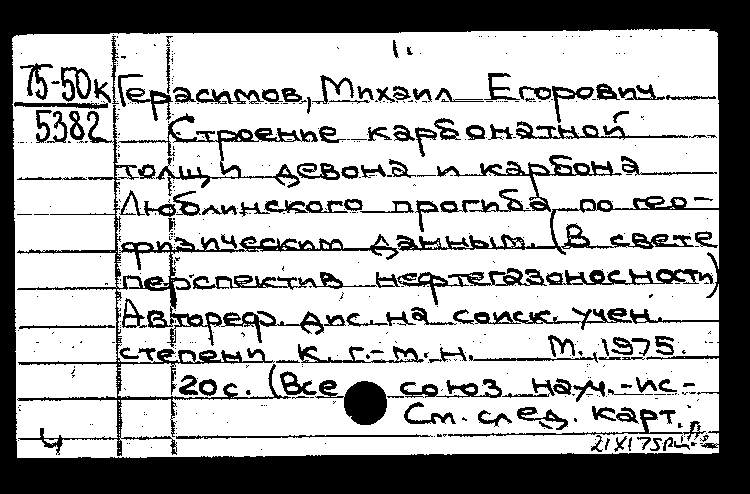 1.
75-50к
5382
Герасимов, Михаил Егорович.
Строение карбонатной
толщи девона и карбона
Люблинского прогиба по гео-
физическим данным. (В свете
перспектив нефтегазоносности)
Автореф. дис. на соиск. учен.
степени к. г.-м. н. М., 1975.
20 с. (Все союз. науч.-ис-
См. след. карт.
4
21 XI 75